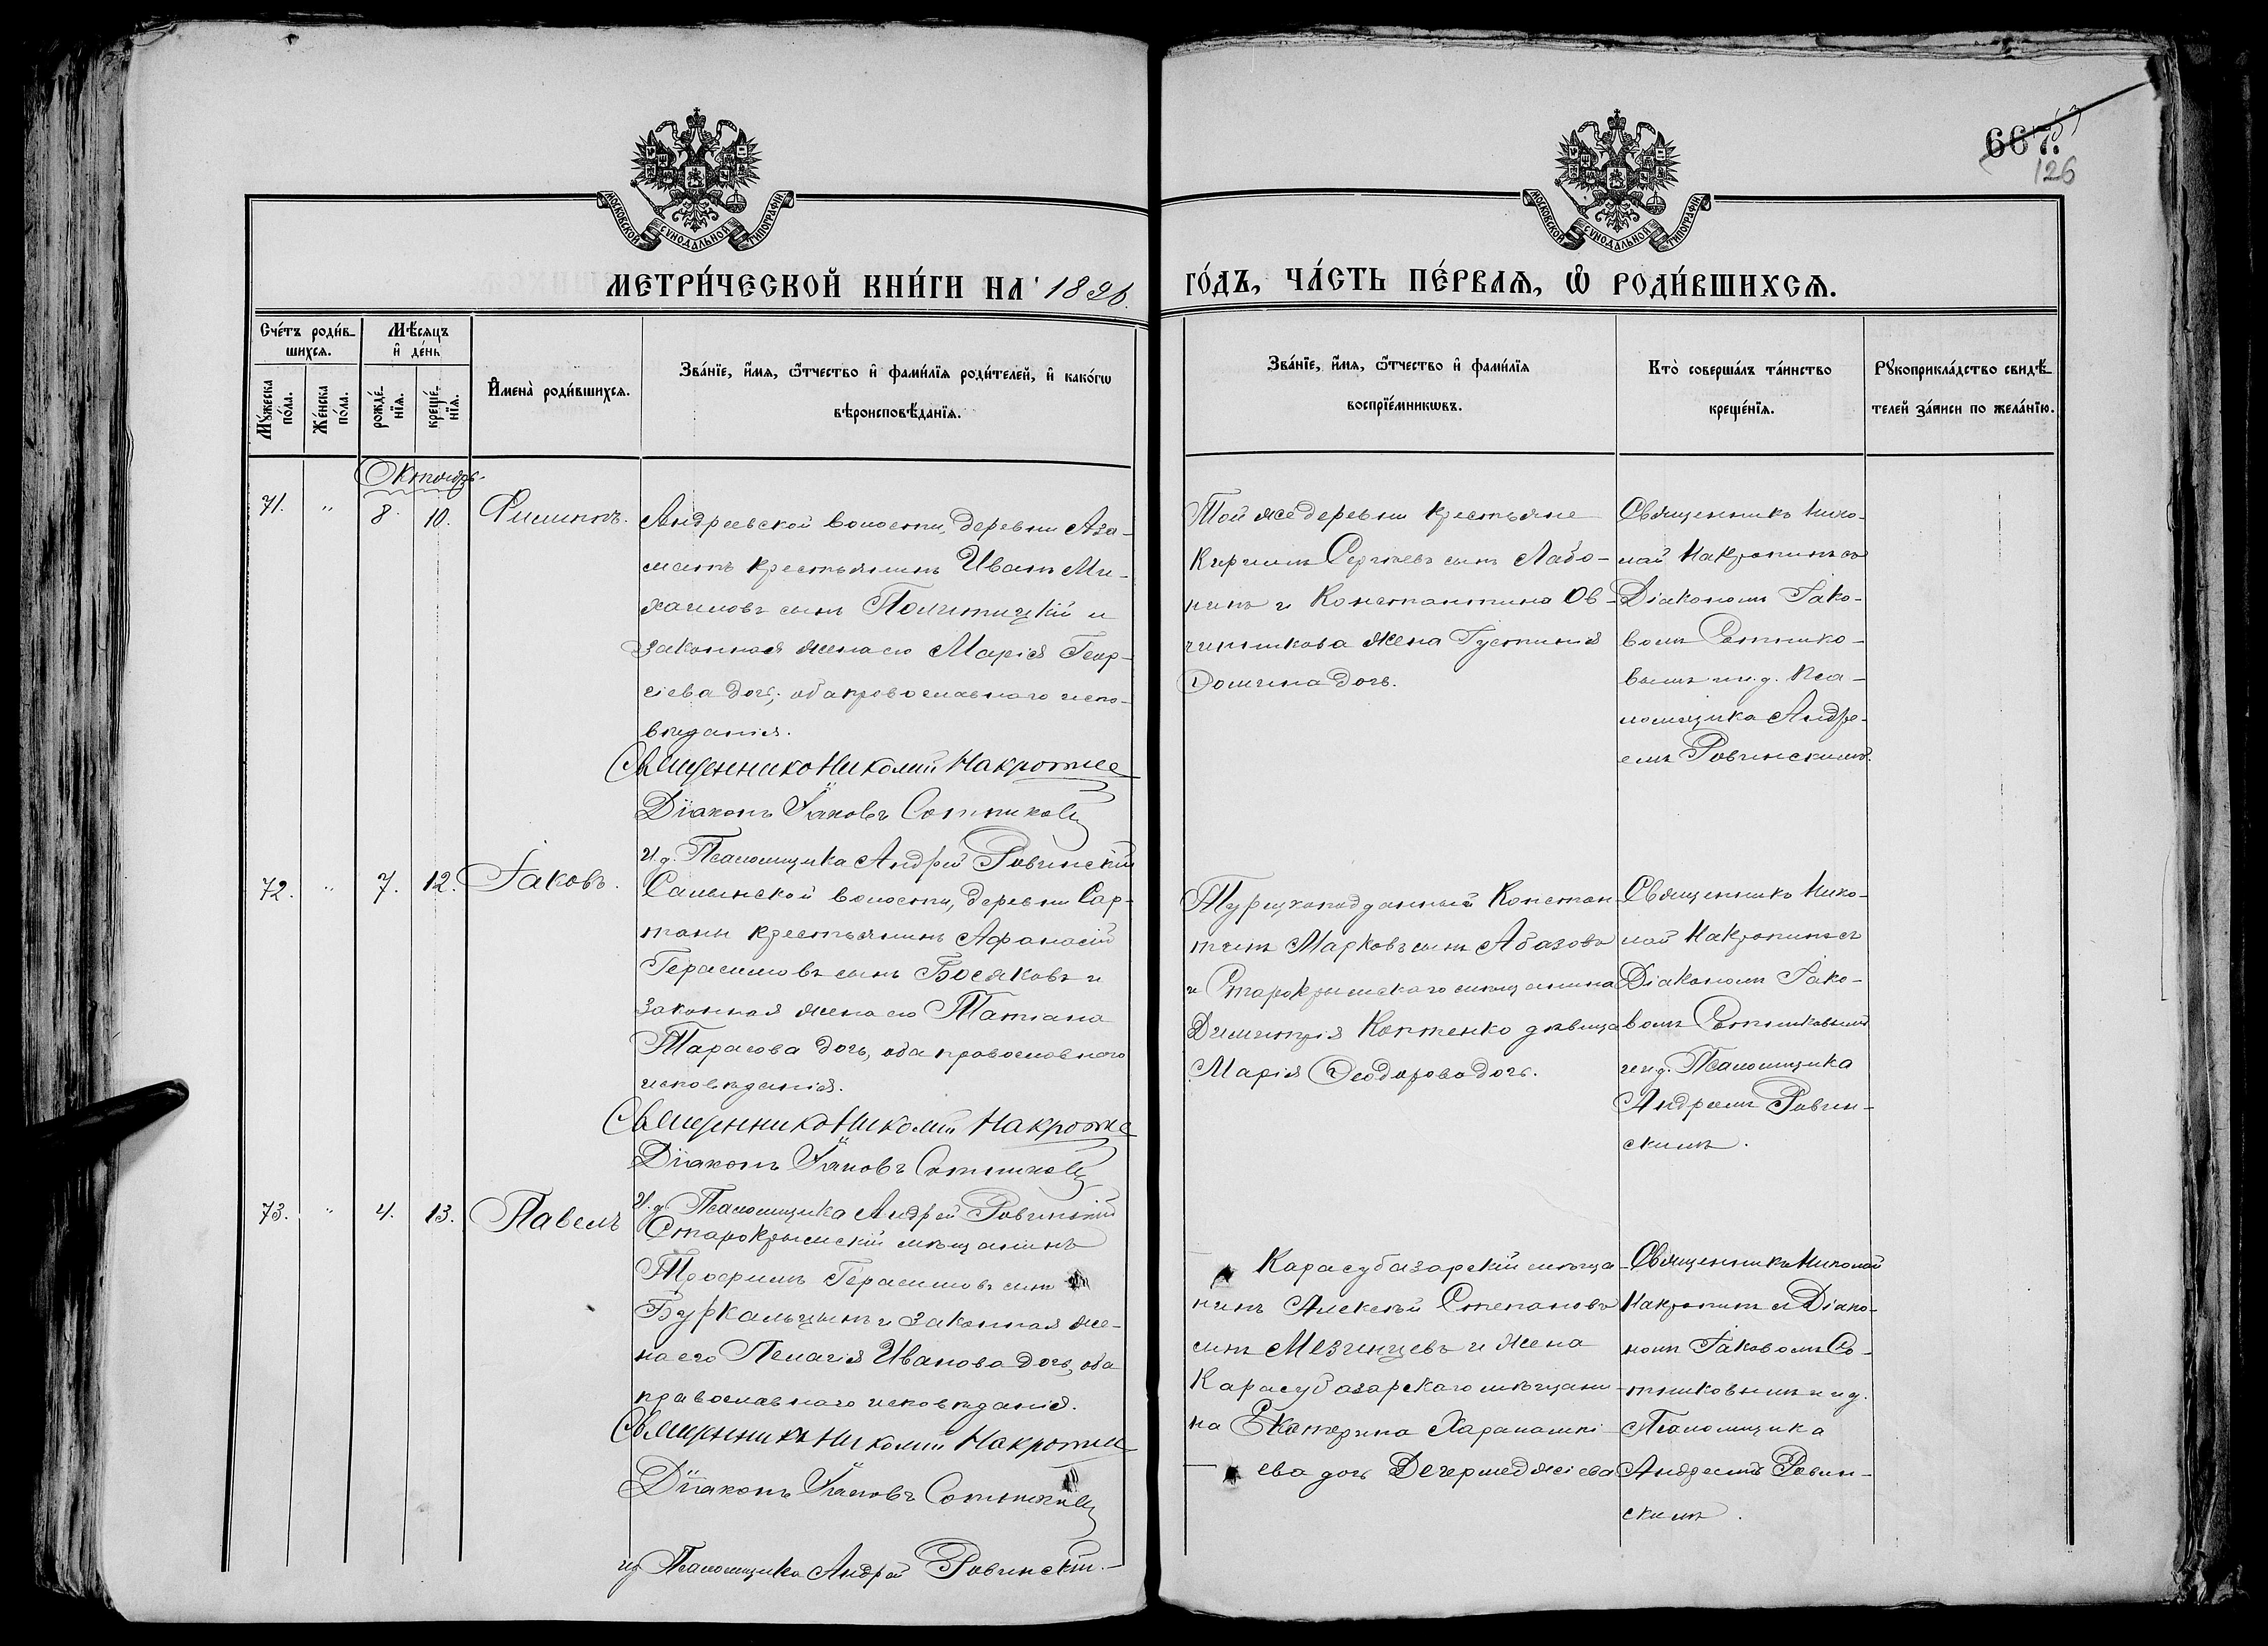 667.
126
МОСКОВСКОЙ СѴНОДАЛЬНОЙ ТИПОГРАФІИ.
МОСКОВСКОЙ СѴНОДАЛЬНОЙ ТИПОГРАФІИ.
МЕТРИ́ЧЕСКОЙ КНИ́ГИ НА 1896.
ГО́ДЪ, ЧА́СТЬ ПЕ́РВАѦ, Ѽ РОДИ́ВШИХСѦ.
Сче́тъ роди́в-
шихсѧ.
Мѣ́сѧцъ
и҆ де́нь
Мꙋ́жеска по́ла.
Же́нска по́ла.
рожде́-
нїѧ.
креще́-
нїѧ.
И҆мена̀ роди́вшихсѧ.
Зва́нїе, и҆́мѧ, ѻ҆́тчество и҆ фами́лїѧ роди́телей, и҆ како́гѡ
вѣроисповѣ́данїѧ.
Зва́нїе, и҆́мѧ, ѻ҆́тчество и҆ фами́лїѧ
воспрїе́мникѡвъ.
Кто̀ соверша́лъ та́инство
креще́нїѧ.
Рꙋкоприкла́дство свидѣ́-
телей за́писи по жела́нїю.
Октябрь
71.
"
8.
10.
Филиппъ.
Андреевской волости, деревни Аза-
матъ крестьянинъ Иванъ Ми-
хаиловъ сынъ Политицкій и
законная жена его Марія Геор-
гіева дочь; оба православнаго испо-
вѣданія.
Священникъ Николай Накропинъ
Діаконъ Іаковъ Сотниковъ
И.д. Псаломщика Андрей Ровинскій
Той же деревни крестьяне
Кириллъ Сергѣевъ сынъ Лабо-
нинъ и Константина Ов-
чинникова жена Густинія
дочь.
Священникъ Нико-
лай Накропинъ съ
Діакономъ Іако-
вомъ Сотнико-
вымъ и и.д. Пса-
ломщика Андре-
емъ Ровинскимъ.
72.
"
7.
12.
Іаковъ.
Салынской волости, деревни Сар-
таны крестьянинъ Афанасій
Герасимовъ сынъ Босяковъ и
законная жена его Татіана
Тарасова дочь, оба православнаго
исповѣданія.
Священникъ Николай Накропинъ
Діаконъ Іаковъ Сотниковъ
И.д. Псаломщика Андрей Ровинскій
Турецкоподданный Констан-
тинъ Марковъ сынъ Абазовъ
и Старокрымскаго мѣщанина
Димитрія Коптенко дѣвица
Марія Ѳеодорова дочь.
Священникъ Нико-
лай Накропинъ съ
Діакономъ Іако-
вомъ Сотниковымъ
и и.д. Псаломщика
Андреемъ Ровин-
скимъ.
73.
"
4.
13.
Павелъ
Старокрымскій мѣщанинъ
Трофимъ Герасимовъ сынъ
Буркальцынъ и законная же-
на его Пелагія Иванова дочь, оба
православнаго исповѣданія.
Священникъ Николай Накропинъ
Діаконъ Іаковъ Сотниковъ
и.д. Псаломщика Андрей Ровинскій.
Карасубазарскій мѣща-
нинъ Алексѣй Степановъ
сынъ Мезинцевъ и жена
Карасубазарскаго мѣщани-
на Екатерина Харлампі-
ева дочь Дегермеджіева
Священникъ Николай
Накропинъ съ Діако-
номъ Іаковомъ Со-
тниковымъ и и.д.
Псаломщика
Андреемъ Ровин-
скимъ.